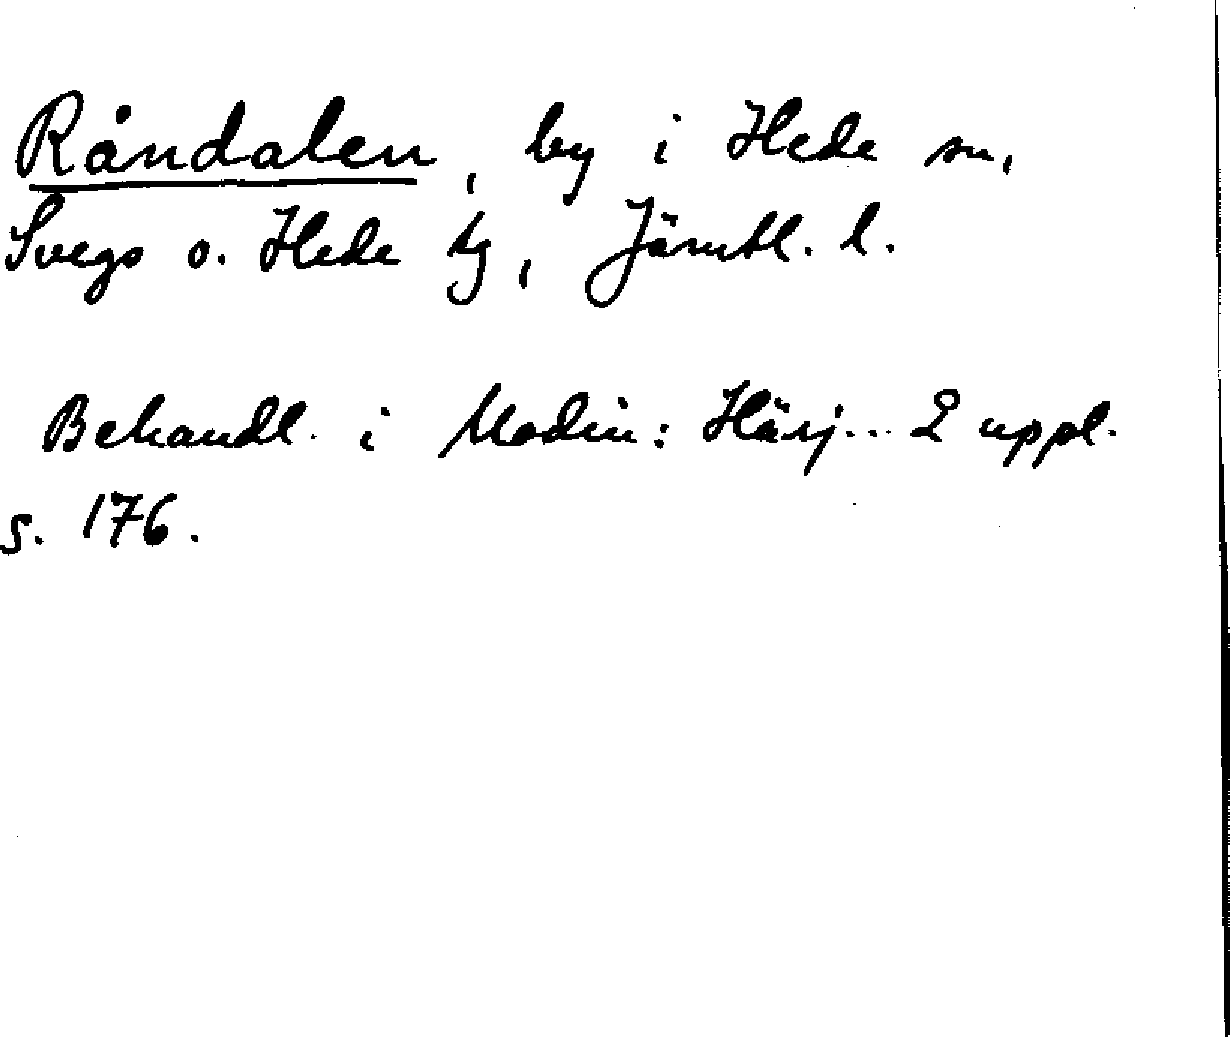 Råndalen, by i Hede sn,
Svegs o. Hede tg, Jämtl. l.
Behandl. i Modin: Härj... 2 uppl.
s. 176.